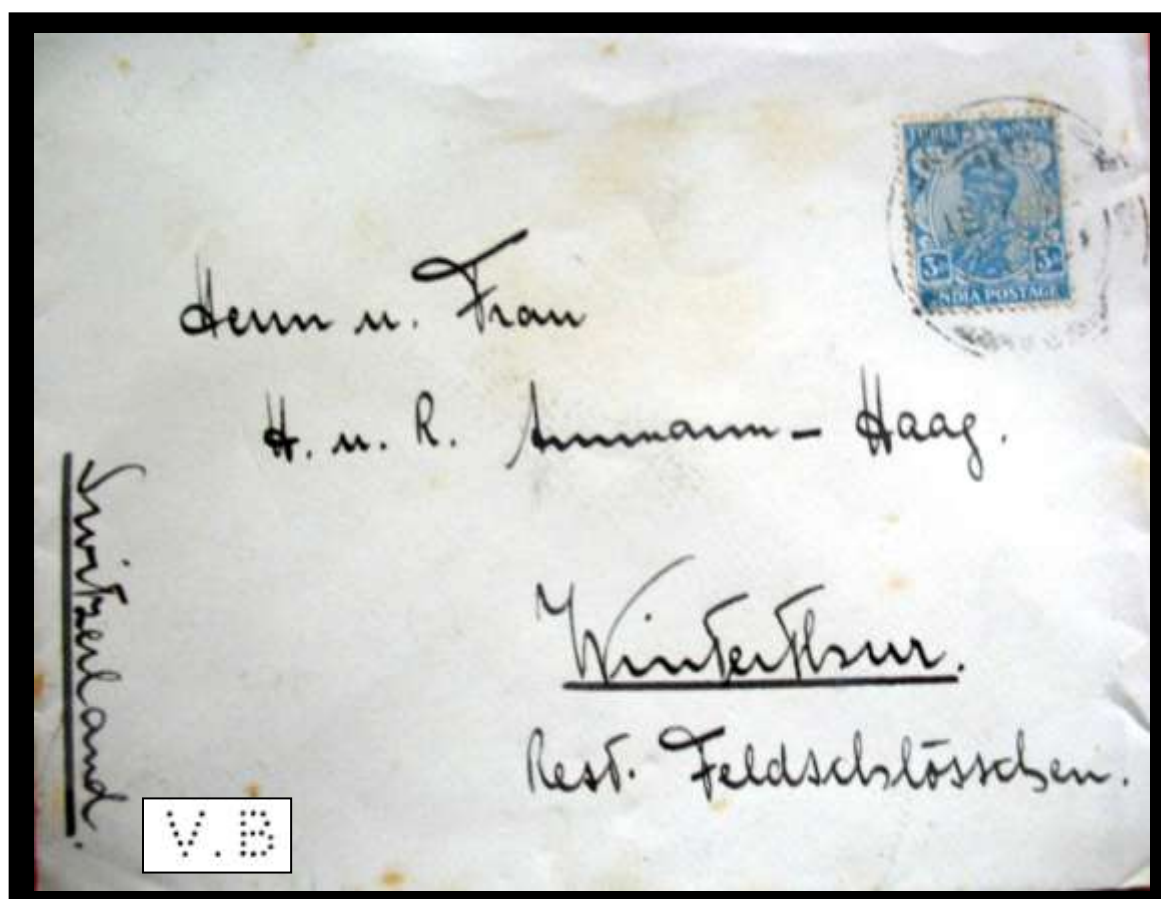 THREE ANNAS
3As 3As
INDIA POSTAGE
Herrn u. Frau
H. u. R. Ammann-Haag.
Winterthur.
Rest. Feldschlösschen.
Switzerland.
V.B